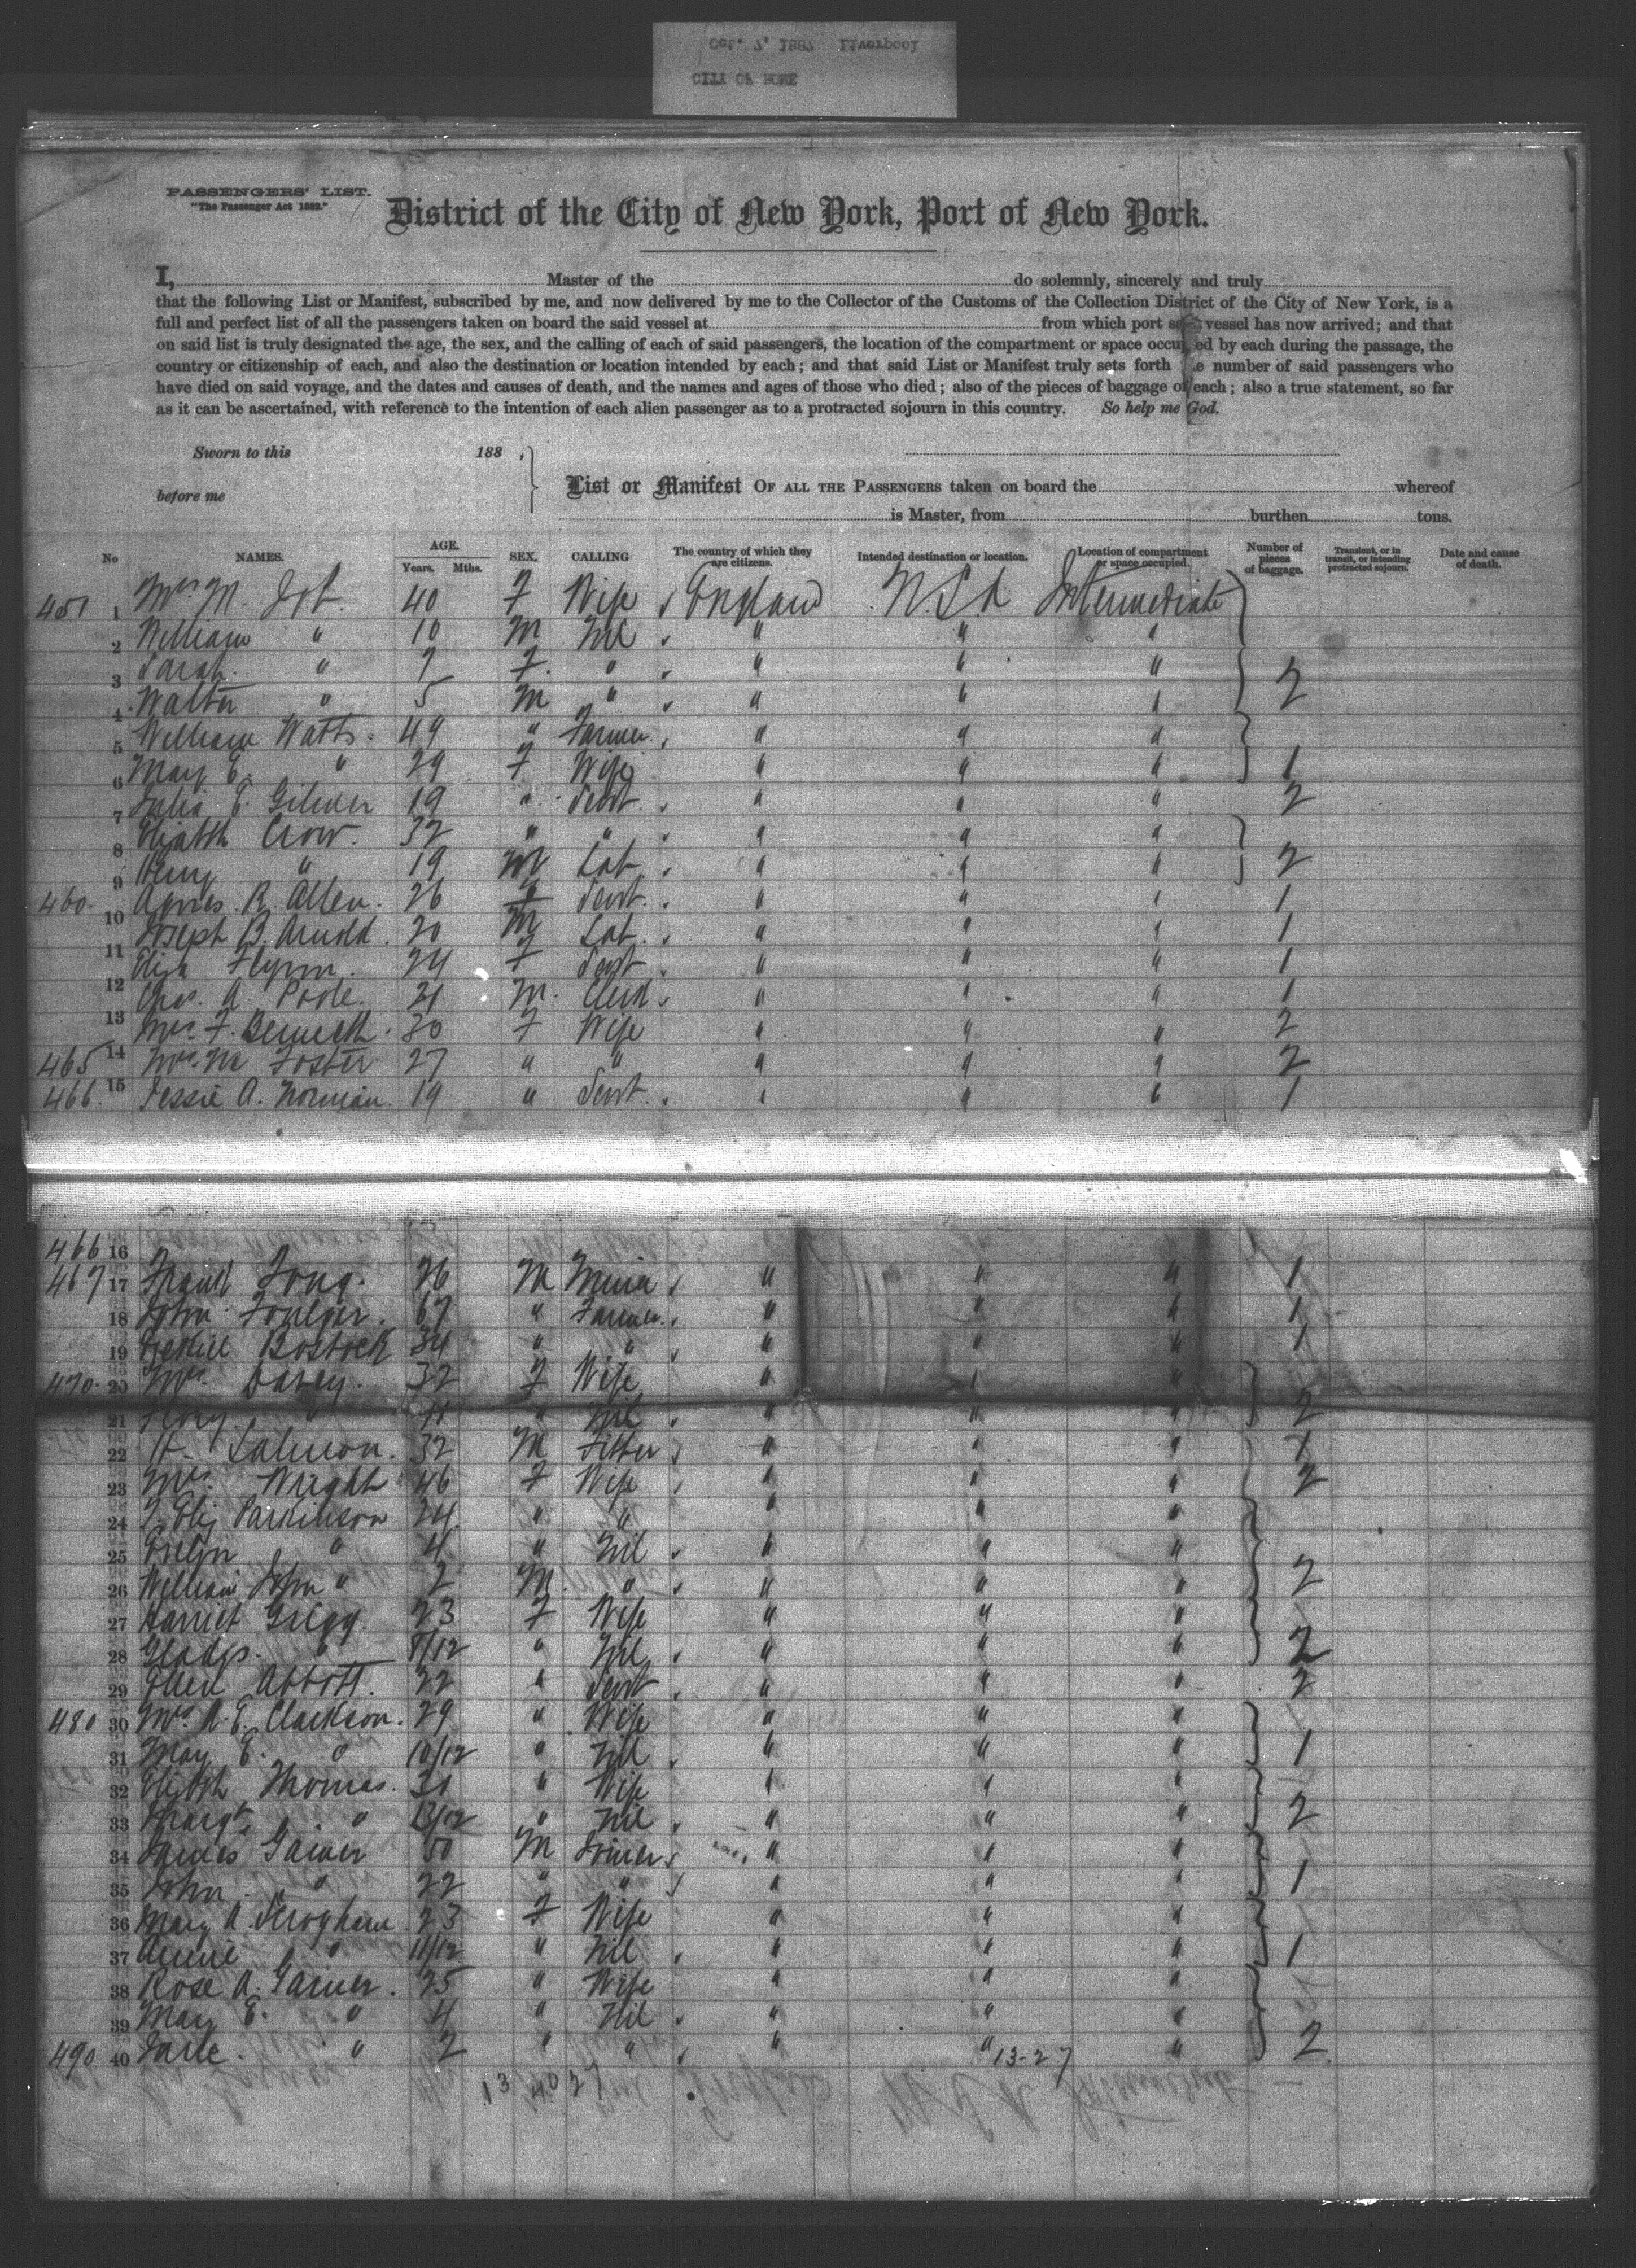 Oct. 7, 1887 Liverpool
CITY OF ROME
PASSENGERS' LIST.
"The Passenger Act 1882."
District of the City of New York, Port of New York.
I, Master of the do solemnly, sincerely and truly
that the following List or Manifest, subscribed by me, and now delivered by me to the Collector of the Customs of the Collection District of the City of New York, is a
full and perfect list of all the passengers taken on board the said vessel at from which port vessel has now arrived; and that
on said list is truly designated the age, the sex, and the calling of each of said passengers, the location of the compartment or space occupied by each during the passage, the
country or citizenship of each, and also the destination or location intended by each; and that said List or Manifest truly sets forth number of said passengers who
have died on said voyage, and the dates and causes of death, and the names and ages of those who died; also of the pieces of baggage of each; also a true statement, so far
as it can be ascertained, with reference to the intention of each alien passenger as to a protracted sojourn in this country. So help me God.
Sworn to this 188 .
before me
List or Manifest OF ALL THE PASSENGERS taken on board the whereof
is Master, from burthen tons.
No NAMES. AGE. Years. Mths. SEX. CALLING The country of which they are citizens. Intended destination or location. Location of compartment or space occupied. Number of pieces of baggage. Transient, or in transit, or intending protracted sojourn. Date and cause of death.
451 1 Mrs M. 40 F Wife England U.S.A Intermediate
2 William " 10 M Nil " " "
3 Sarah " 7 F. " " " " 2
4 Walter " 5 M " " " "
5 William Watts. 49 " Farmer " " "
6 Mary E. " 29 F Wife " " " 1
7 Julia E. 19 " Servt. " " " 2
8 Elizabth Crow. 32 " " " " "
9 Henry " 19 M Lab. " " " 2
460. 10 Agnes R. Allen. 26 F Servt. " " " 1
11 Joseph B. Arnold. 20 M Lab. " " " 1
12 Eliza Flynn. 24 F Servt " " " 1
13 Chas. A. Poole. 21 M. Clerk " " " 1
14 Mrs. F. Bennett. 30 F Wife " " " 2
465 15 Mrs. M Foster 27 " " " " " 2
466. Jessie A. Norman. 19 " Servt. " " " 1
466 16
467 17 Frank 26 M " " " 1
18 John Foulger. 67 " Farmer. " " " 1
19 Ezekiel Bostock 34 " " " " " 1
470. 20 Mrs. Davey. 32 F Wife " " "
21 " 11 " Nil " " " 2
22 H. Salmon. 32 M Fitter " " " 1
23 Mrs Wright 46 F Wife " " " 2
24 Parkinson 24 " " " " "
25 Evelyn " 4 " Nil " " "
26 William John " 2 M. " " " " 2
27 Harriet Gregg. 23 F Wife " " "
28 Gladys. " 8/12 " Nil " " " 2
29 Ellen Abbott. 22 " Servt " " " 2
480 30 Mrs A. E. Clarkson. 29 " Wife " " "
31 May E. " 10/12 " Nil " " " 1
32 Elizbth Thomas. 31 " Wife " " "
33 Margt. " 13/12 " Nil " " " 2
34 James Gainer 50 M Joiner " " "
35 John " 22 " " " " " 1
36 Mary A. 23 F Wife " " "
37 Annie " 11/12 " Nil " " " 1
38 Rose A. Gainer. 25 " Wife " " "
39 Mary E. " 4 " Nil " " "
490 40 " 2 " " " " " 2
13-27
13 40 27